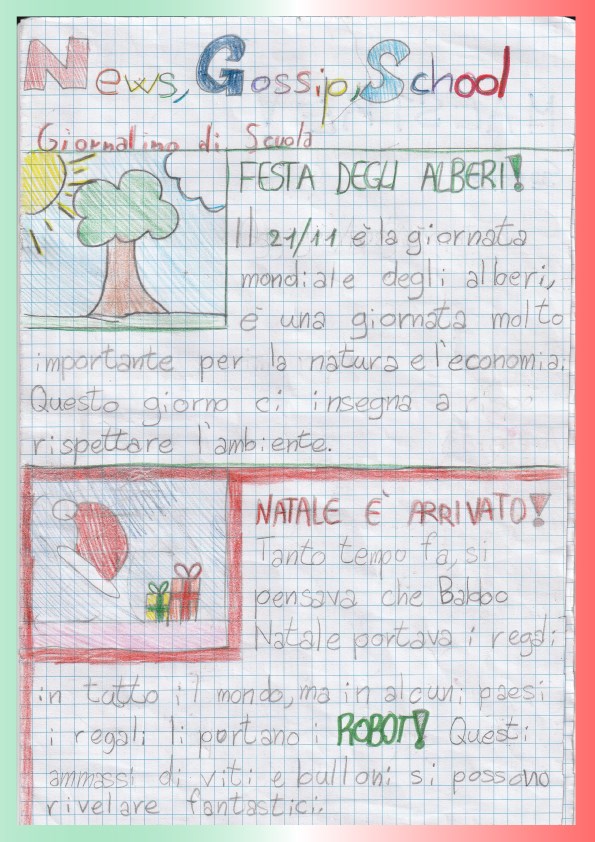 News, Gossip, School
Giornalino di Scuola
FESTA DEGLI ALBERI!
Il 21/11 è la giornata
mondiale degli alberi,
è una giornata molto
importante per la natura e l'economia.
Questo giorno ci insegna a
rispettare l'ambiente.
NATALE E' ARRIVATO!
Tanto tempo fa, si
pensava che Babbo
Natale portava i regali
in tutto il mondo, ma in alcuni paesi
i regali li portano i ROBOT! Questi
ammassi di viti e bulloni si possono
rivelare fantastici.